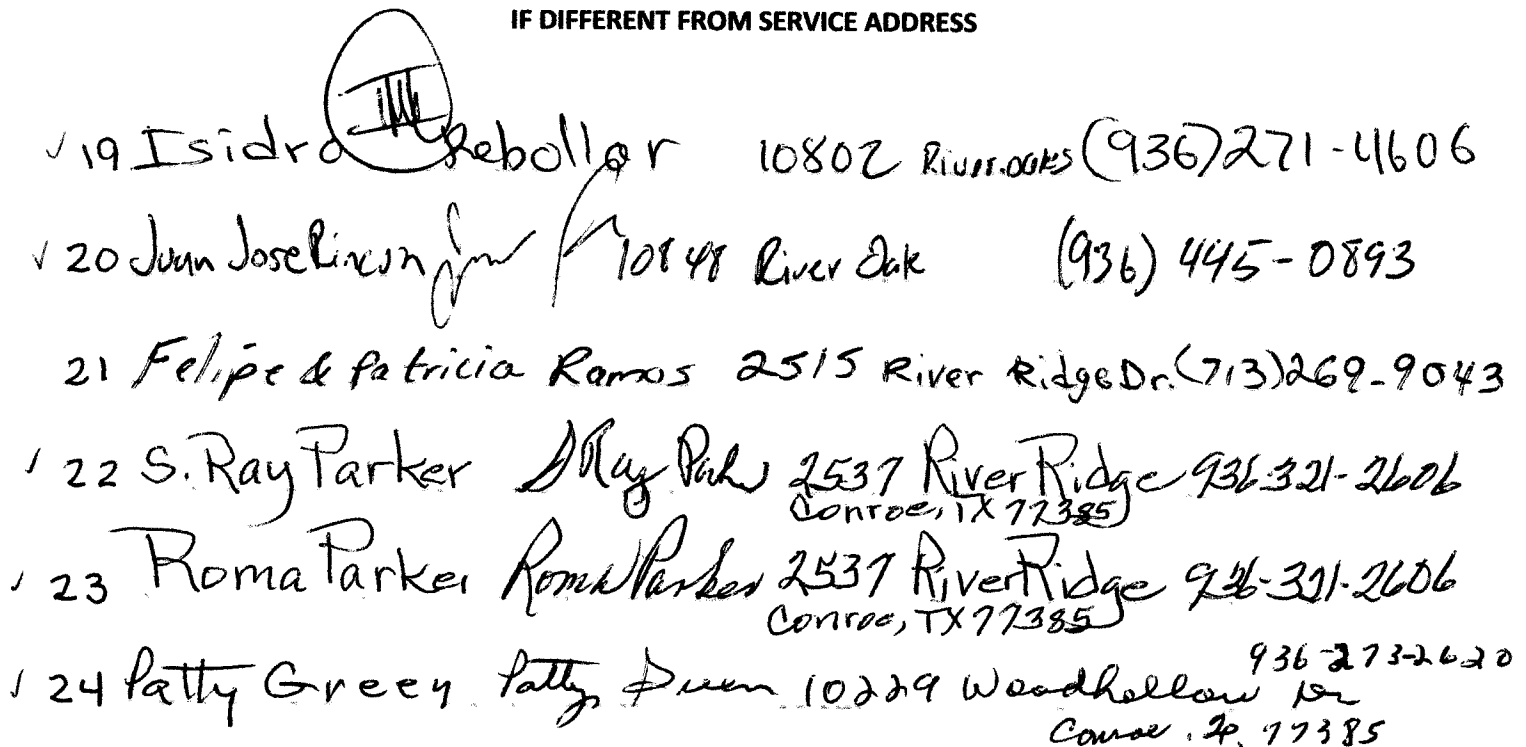 IF DIFFERENT FROM SERVICE ADDRESS
19 Isidro III Rebollar 10802 River oaks (936)271-4606
20 Juan Jose Rincon 10848 River Oak (936) 445-0893
21 Felipe & Patricia Ramos 2515 River Ridge Dr. (713)269-9043
22 S. Ray Parker S Ray Parker 2537 River Ridge 936-321-2606
Conroe, TX 77385
23 Roma Parker Roma Parker 2537 River Ridge 936-321-2606
Conroe, TX 77385
936-273-2620
24 Patty Green Patty Green 10229 Woodhollow Dr
Conroe, 77385